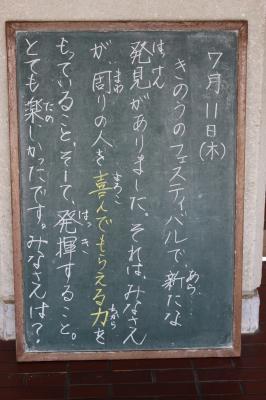 7月11日(木)
きのうのフェスティバルで、新たな
発見がありました。それは、みなさん
が、周りの人を喜んでもらえる力を
もっていること、そして、発揮すること。
とても楽しかったです。みなさんは?